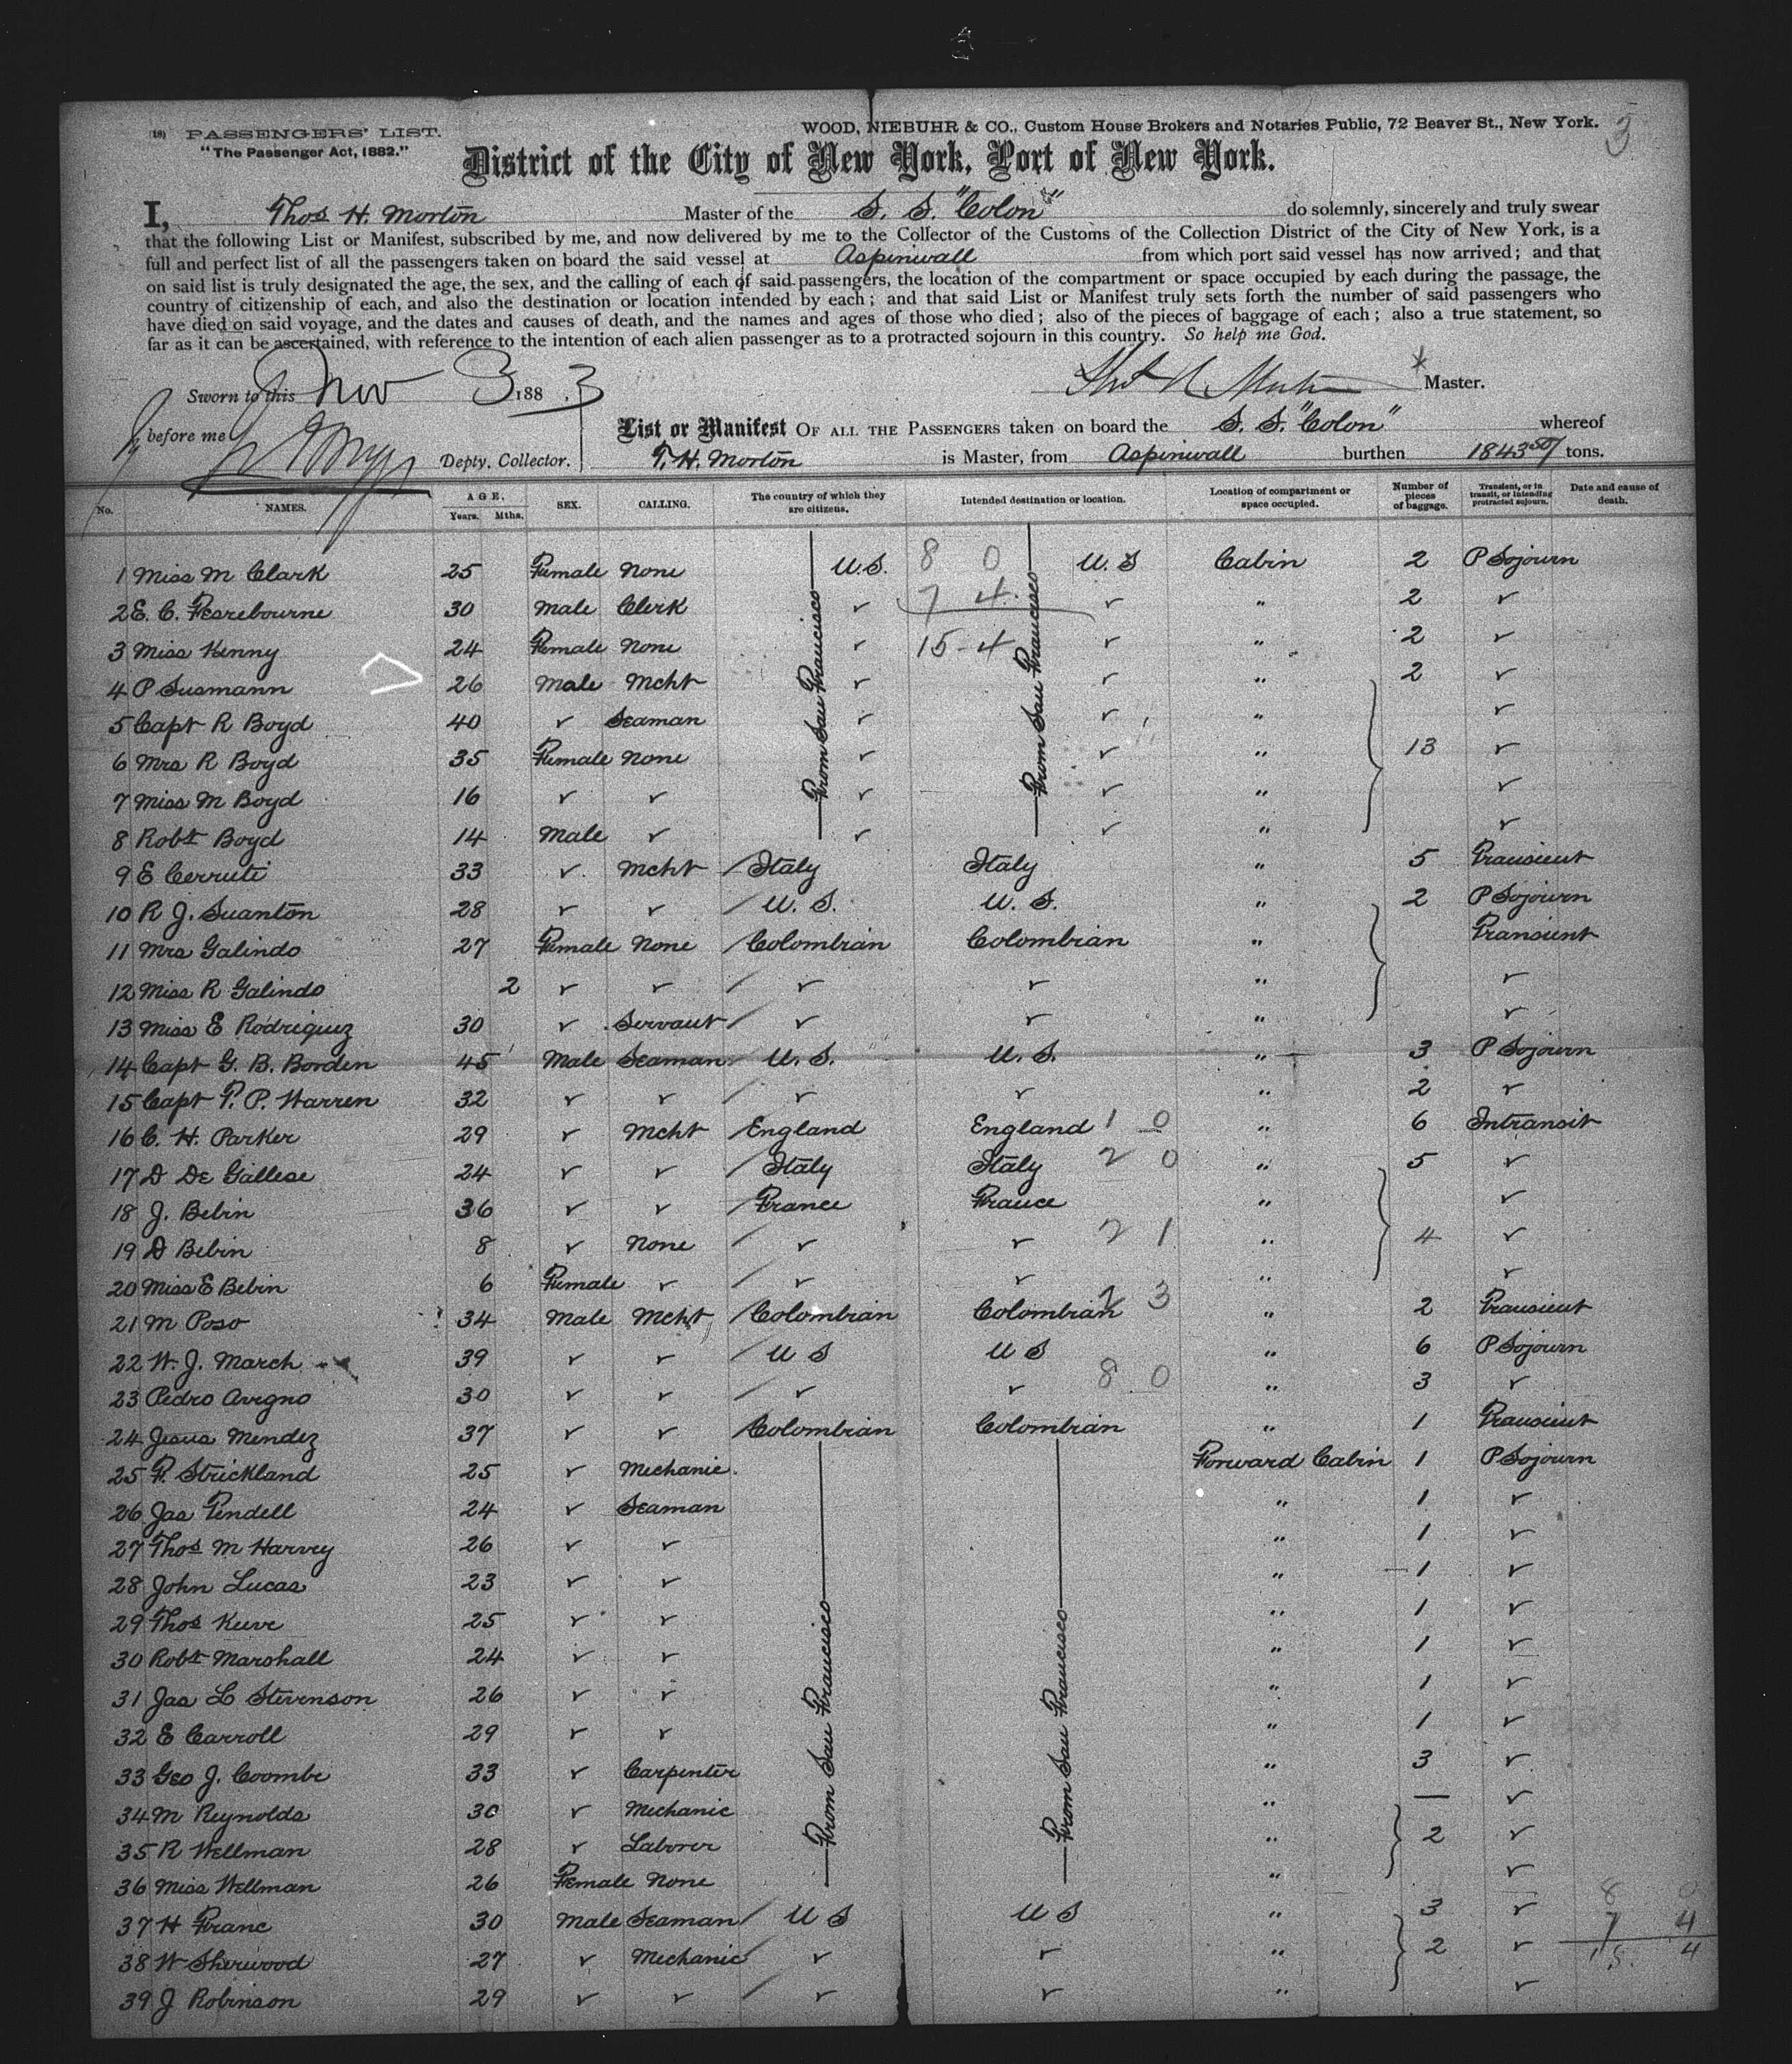 3
(18) PASSENGERS' LIST.
"The Passenger Act, 1882."
WOOD, NIEBUHR & CO., Custom House Brokers and Notaries Public, 72 Beaver St., New York.
District of the City of New York, Port of New York.
I, Thos H. Morton Master of the S. S. "Colon" do solemnly, sincerely and truly swear
that the following List or Manifest, subscribed by me, and now delivered by me to the Collector of the Customs of the Collection District of the City of New York, is a
full and perfect list of all the passengers taken on board the said vessel at Aspinwall from which port said vessel has now arrived; and that
on said list is truly designated the age, the sex, and the calling of each of said passengers, the location of the compartment or space occupied by each during the passage, the
country of citizenship of each, and also the destination or location intended by each; and that said List or Manifest truly sets forth the number of said passengers who
have died on said voyage, and the dates and causes of death, and the names and ages of those who died; also of the pieces of baggage of each; also a true statement, so
far as it can be ascertained, with reference to the intention of each alien passenger as to a protracted sojourn in this country. So help me God.
Sworn to this Nov 3 1883
Master.
before me
Depty. Collector.
List or Manifest OF ALL THE PASSENGERS taken on board the S. S. "Colon" whereof
T. H. Morton is Master, from Aspinwall burthen 1843 50/ tons.
No. NAMES. AGE. Years. Mths. SEX. CALLING. The country of which they are citizens. Intended destination or location. Location of compartment or space occupied. Number of pieces of baggage. Transient, or in transit, or intending protracted sojourn. Date and cause of death.
From San Francisco
From San Francisco
1 Miss M Clark 25 Female None U.S. 8 0 U.S Cabin 2 P Sojourn
2 E. C. Fesrebourne 30 Male Clerk ✓ 7 4 ✓ " 2 ✓
3 Miss Kenny 24 Female None ✓ 15-4 ✓ " 2 ✓
4 P Susmann 26 Male Mcht ✓ ✓ " 2 ✓
5 Capt R Boyd 40 ✓ Seaman ✓ ✓ " ✓
6 Mrs R Boyd 35 Female None ✓ ✓ " 13 ✓
7 Miss M Boyd 16 ✓ ✓ ✓ ✓ " ✓
8 Robt Boyd 14 Male ✓ ✓ ✓ " ✓
9 E Cerruti 33 ✓ Mcht / Italy Italy " 5 Transient
10 R J. Suanton 28 ✓ ✓ / U. S. U. S. " 2 P Sojourn
11 Mrs Galindo 27 Female None / Colombian Colombian " Transient
12 Miss R Galindo 2 ✓ ✓ / ✓ ✓ " ✓
13 Miss E Rodriguez 30 ✓ Servant / ✓ ✓ " ✓
14 Capt G. B. Borden 45 Male Seaman / U. S. U. S. " 3 P Sojourn
15 Capt T. P. Warren 32 ✓ ✓ / ✓ ✓ " 2 ✓
16 C. H. Parker 29 ✓ Mcht / England England 1 0 " 6 Intransit
17 D De Gallese 24 ✓ ✓ / Italy Italy 2 0 " 5 ✓
18 J. Bebin 36 ✓ ✓ / France France " ✓
19 D Bebin 8 ✓ None / ✓ ✓ 2 1 " 4 ✓
20 Miss E Bebin 6 Female ✓ / ✓ ✓ " ✓
21 M Poso 34 Male Mcht / Colombian Colombian 2 3 " 2 Transient
22 W. J. March 39 ✓ ✓ / U S U S " 6 P Sojourn
23 Pedro Avegno 30 ✓ ✓ / ✓ ✓ 8 0 " 3 ✓
24 Jesus Mendez 37 ✓ ✓ / Colombian Colombian " 1 Transient
25 F. Strickland 25 ✓ Mechanic. Forward Cabin 1 P Sojourn
26 Jas Tendell 24 ✓ Seaman " 1 ✓
27 Thos M Harvey 26 ✓ ✓ " 1 ✓
28 John Lucas 23 ✓ ✓ " 1 ✓
29 Thos Keeve 25 ✓ ✓ " 1 ✓
30 Robt Marshall 24 ✓ ✓ " 1 ✓
31 Jas L Stevenson 26 ✓ ✓ " 1 ✓
32 E Carroll 29 ✓ ✓ " 1 ✓
33 Geo J. Coombe 33 ✓ Carpenter " 3 ✓
34 M Reynolds 30 ✓ Mechanic " — ✓
35 R Wellman 28 ✓ Laborer " 2 ✓
36 Miss Wellman 26 Female None " ✓
From San Francisco
From San Francisco
37 H Franc 30 Male Seaman / U S U S " 3 ✓ 8 0
38 W Sherwood 27 ✓ Mechanic / ✓ ✓ " 2 ✓ 7 4
39 J Robinson 29 ✓ ✓ / ✓ ✓ " ✓ 15. 4